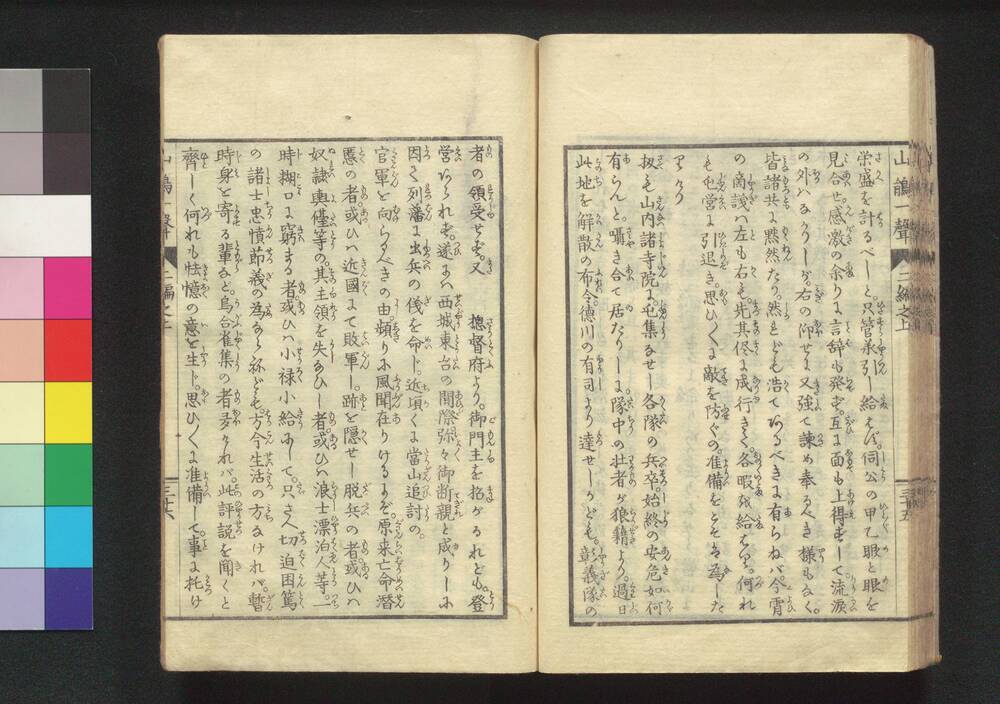 山鵑一聲 二編之上 三十五
栄盛を計るべしと。只管承引し給はず。伺公の甲乙眼と眼を
見合せ。感激の余りに言辞も発ず。互に面も上得ずして流涙
の外はなかりしが。右の仰せに又強て諫め奉るべき様もなく。
皆諸共に黙然たり。然れども浩てあるべきに有らねば今霄
の商議は左も右も。先其侭に成行きて。各暇を給はり。何れ
も屯営に引退き。思ひ〳〵に敵を防ぐの。准備をとそは為した
りける
扨も山内諸寺院に屯集なせし各隊の兵卒始終の安危如何
有らんと。囁き合て居たりしに隊中の壮者が狼籍より。過日
此地を解散の布令。徳川の有司より達せしかども。彰義隊の
者の領受せず。又 摠督府より。御門主を招がるれども。登
営あられず。遂には西城東台の間際弥々御断親と成りしに
因て列藩に出兵の伐を命じ。近頃くに當山追討の。
官軍を向らるべきの由。頻りに風聞在りけるにぞ。原来亡命潜
匿の者或ひは近國にて敗軍し。跡を隠せし脱兵の者。或ひは
奴隷輿儓等の。其主領を失なひし者。或ひは浪士漂泊人等。一
時糊口に窮する者。或ひは小禄小給にして。只さへ切迫困篤
の諸士忠憤節義の為ならねども。方今生活の方なければ。暫
時身を寄る輩など。烏合雀集の者多ければ。此評説を聞くと
齊しく何れも怯憶の意を生じ。思ひ〳〵に准備して。事に托け
山鵑一聲 二編之上 三十六